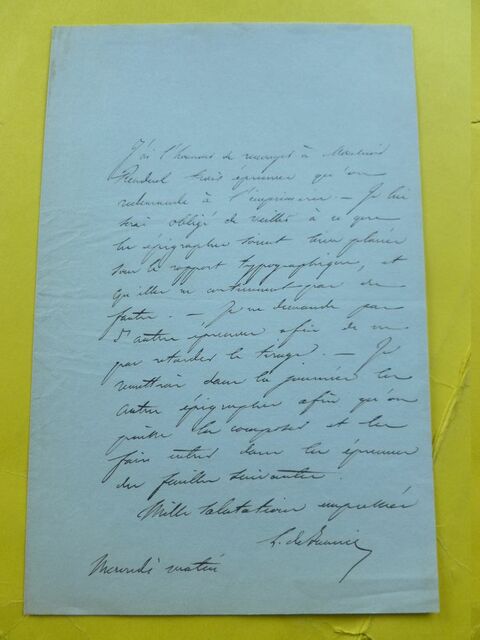 J'ai l'honneur de renvoyer à Monsieur
Renduel trois épreuves qu'on
redemande à l'imprimerie. — Je lui
serai obligé de veiller à ce que
les épigraphes soient bien placées
sous le rapport typographique, et
qu'elles ne contiennent pas de
fautes. — Je ne demande pas
d'autre épreuve afin de ne
pas retarder le tirage. — Je
remettrai dans la journée les
autres épigraphes afin qu'on
puisse les composer et les
faire entrer dans les épreuves
des feuilles suivantes.
Mille salutations empressées
Mercredi matin